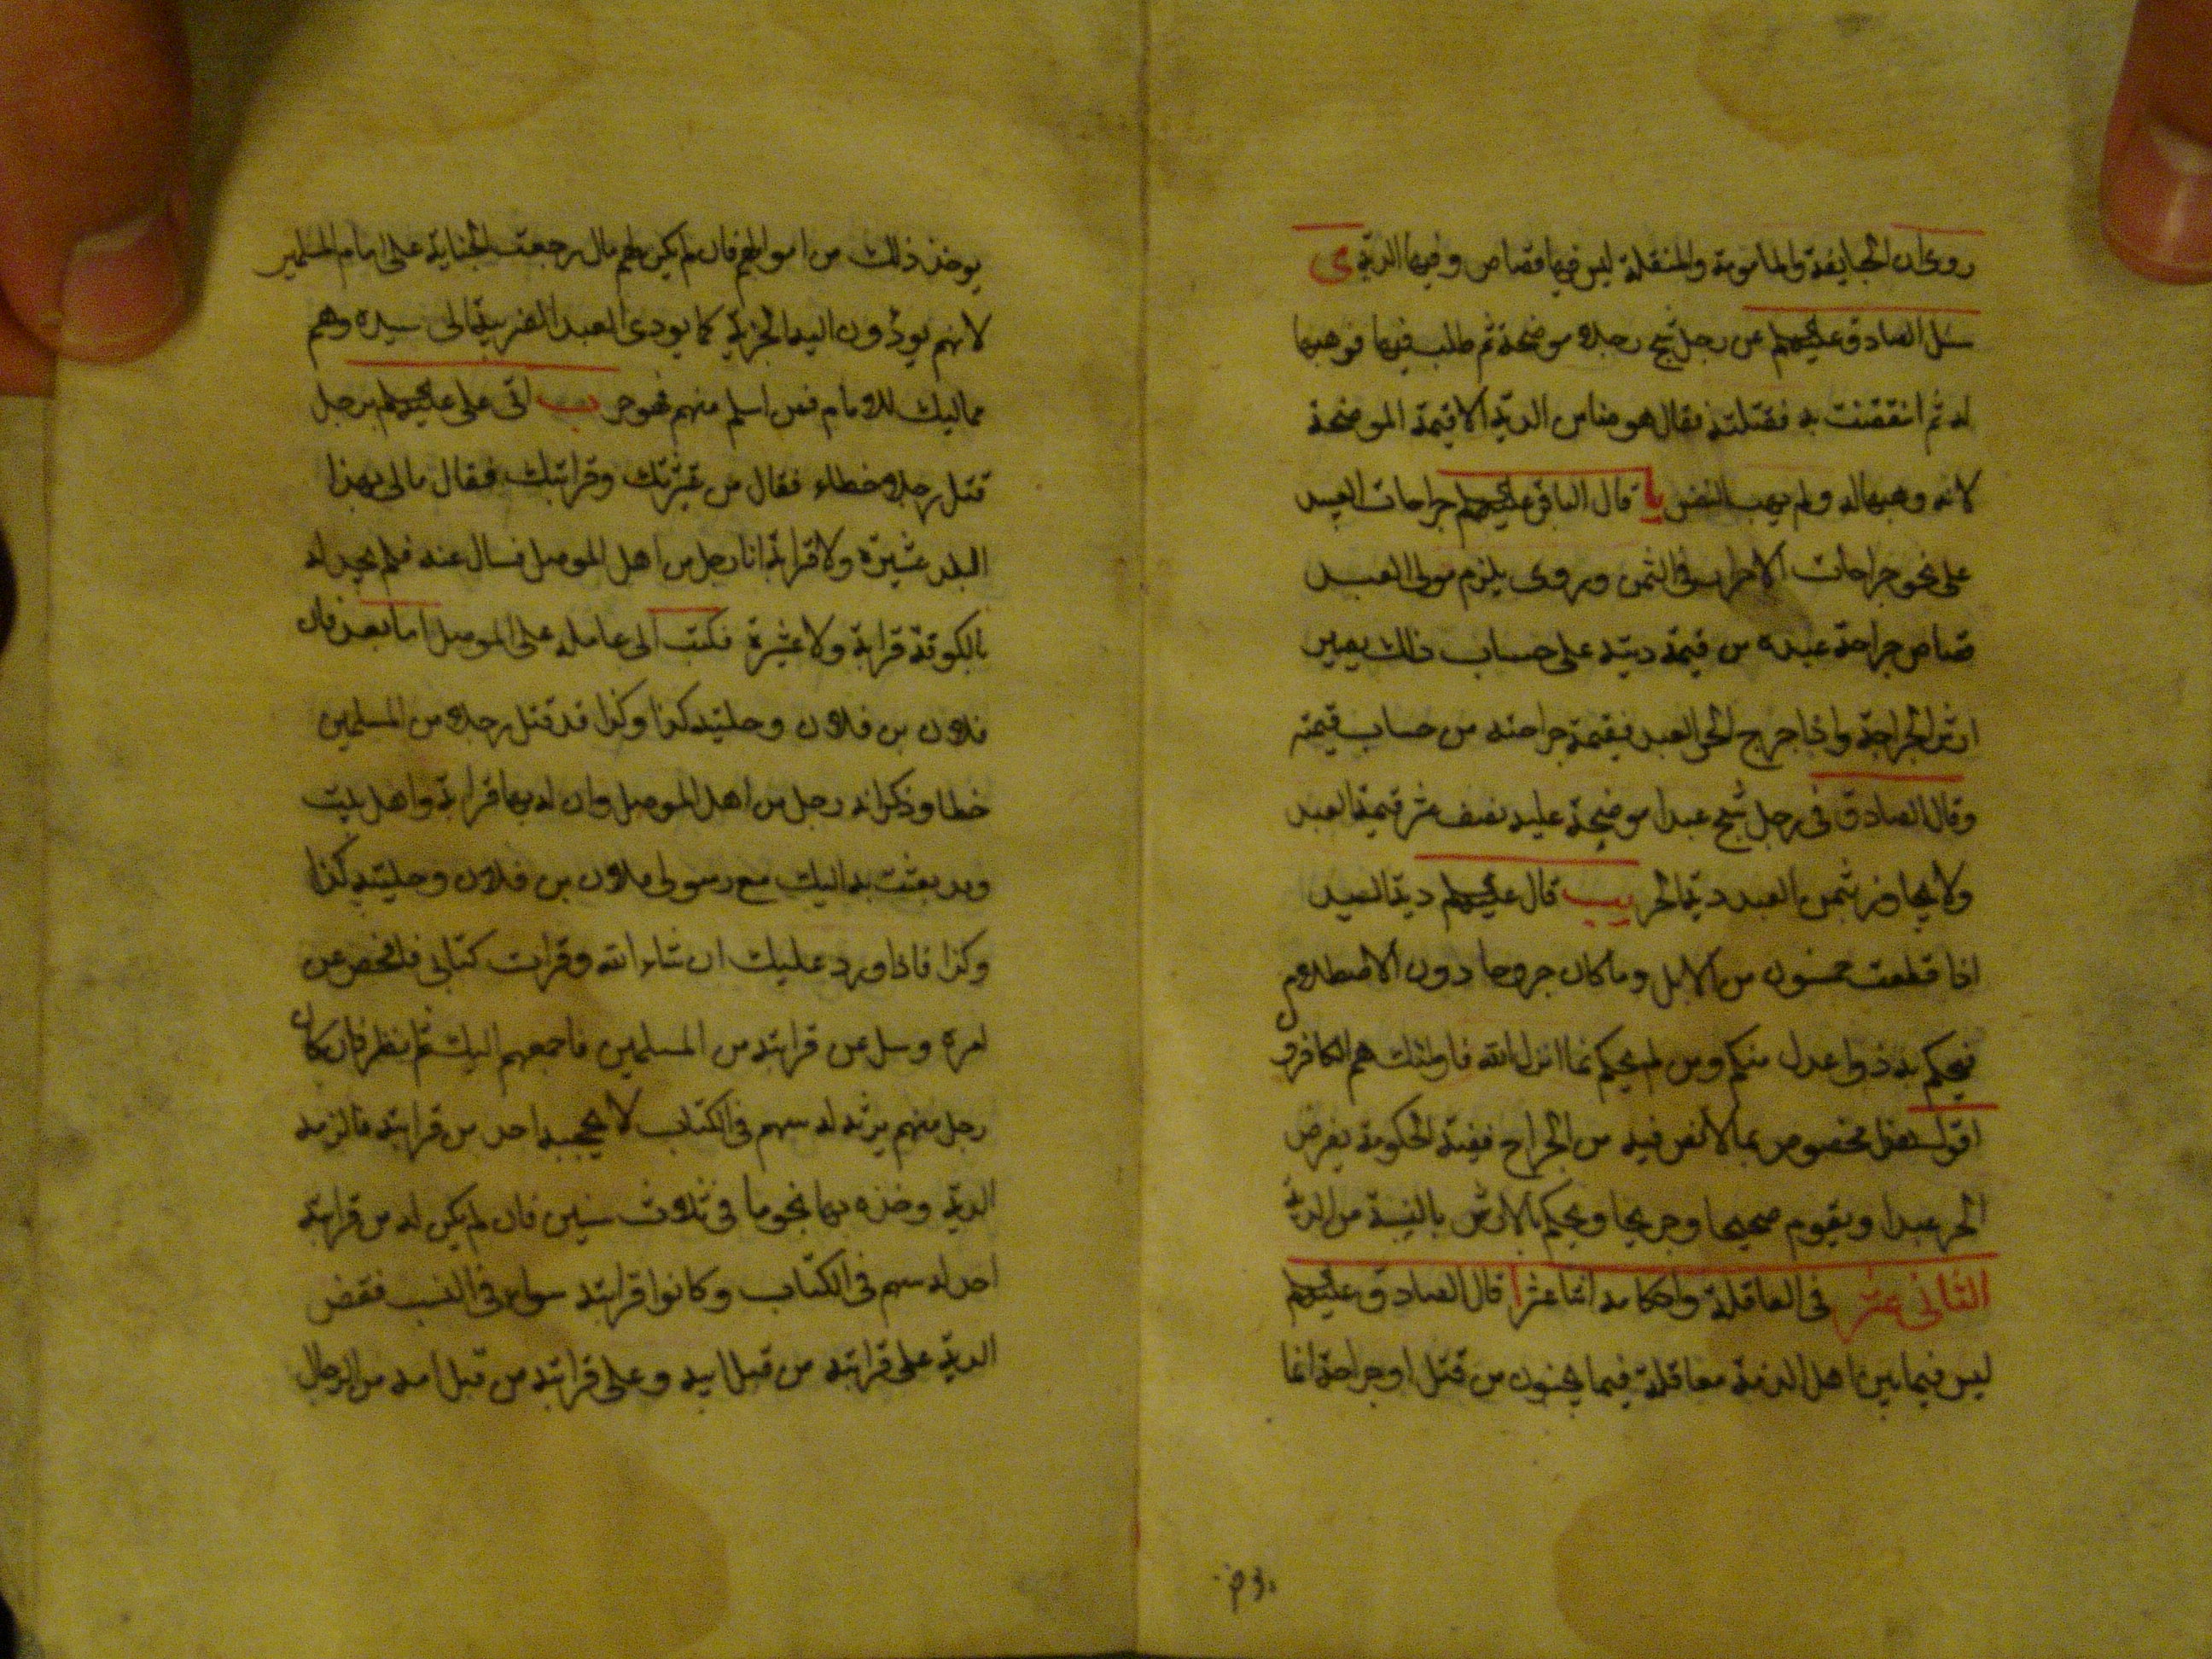 روى ان الجايفة والمامومة والمنقلة ليس فيها قصاص وفيها الدية ى
سئل الصادق عليه السلم عن رجل شج رجلا موضحة ثم طلب فيها فوهبها
له ثم انتقضت به فقتلته فقال هو ضامن الدية الا قيمة الموضحة
لانه وهبها له ولم يهب النفس يا قال الباقر عليه السلم جراحات العبيد
على نحو جراحات الاحرار فى الثمن وروى يلزم مولى العبد
قصاص جراحة عبده من قيمة ديته على حساب ذلك يصير
ارش الجراحة واذا جرح الحر العبد فقيمة جراحته من حساب قيمته
وقال الصادق فى رجل شج عبدا موضحة عليه نصف عشر قيمة العبد
ولا يجاوز ثمن العبد دية الحر يب قال عليه السلم دية اليد
اذا قطعت خمسون من الابل وما كان جروحا دون الاصطلام
فيحكم به ذوا عدل منكم ومن لم يحكم بما انزل الله فاولئك هم الكافرون
اقول هذا مخصوص بما لا نص فيه من الجراح ففيه الحكومة يفرض
الحر عبدا ويقوم صحيحا وجريحا ويحكم بالارش بالنسبة من الدية
الثانى عشر فى العاقلة واحكامه اثنا عشر ا قال الصادق عليه السلم
ليس فيما بين اهل الذمة معاقلة فيما يجنون من قتل او جراحة انما
يوخذ ذلك من اموالهم فان لم يكن لهم مال رجعت الجناية على امام المسلمين
لانهم يودون اليه الجزية كما يودى العبد الضريبة الى سيده وهم
مماليك للامام فمن اسلم منهم فهو حر ب اتى على عليه السلم برجل
قتل رجلا خطاء فقال من عشيرتك وقرابتك فقال مالى بهذا
البلد عشيرة ولا قرابة انا رجل من اهل الموصل فسال عنه فلم يجد له
بالكوفة قرابة ولا عشيرة فكتب الى عامله على الموصل اما بعد فان
فلان بن فلان وحليته كذا وكذا قد قتل رجلا من المسلمين
خطا وذكر انه رجل من اهل الموصل وان له بها قرابة واهل بيت
وقد بعثت به اليك مع رسولى فلان بن فلان وحليته كذا
وكذا فاذا ورد عليك ان شاء الله وقرات كتابى فافحص عن
امره وسل عن قرابته من المسلمين فاجمعهم اليك ثم انظر فان كان
رجل منهم يرثه له سهم فى الكتاب لا يحجبه احد من قرابته فالزمه
الدية وخذه بها نجوما فى ثلاث سنين فان لم يكن له من قرابته
احد له سهم فى الكتاب وكانوا قرابته سواء فى النسب ففض
الدية على قرابته من قبل ابيه وعلى قرابته من قبل امه من الرجال